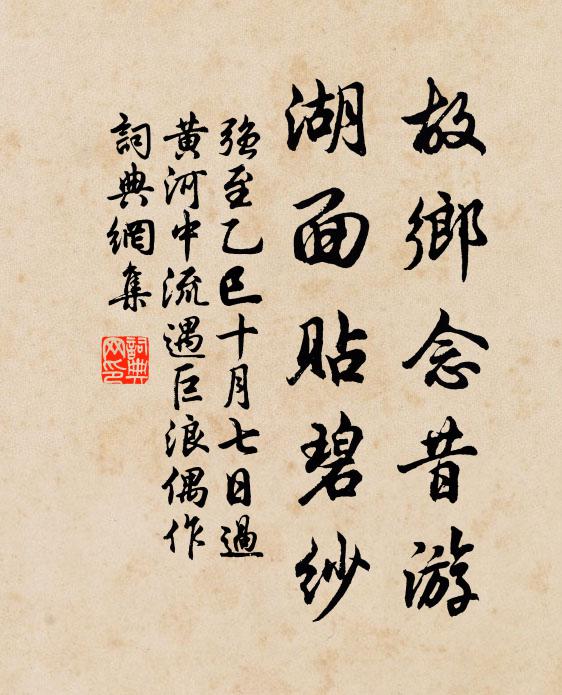 故鄉念昔游
湖面貼碧紗
強至乙巳十月七日過
黃河中流遇巨浪偶作
詞典網集
詞典網印